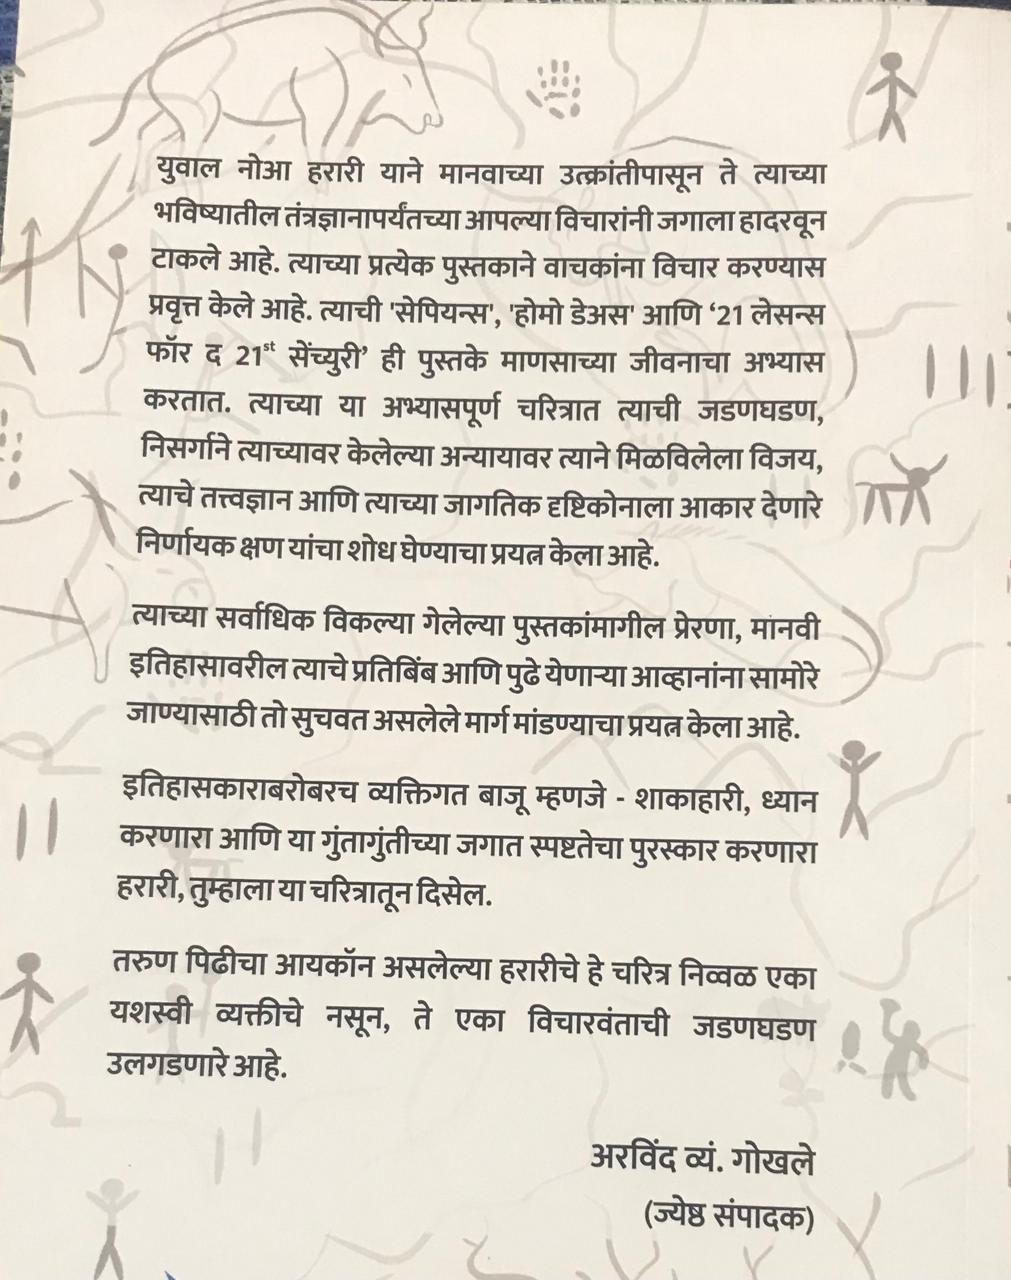 युवाल नोआ हरारी याने मानवाच्या उत्क्रांतीपासून ते त्याच्या
भविष्यातील तंत्रज्ञानापर्यंतच्या आपल्या विचारांनी जगाला हादरवून
टाकले आहे. त्याच्या प्रत्येक पुस्तकाने वाचकांना विचार करण्यास
प्रवृत्त केले आहे. त्याची 'सेपियन्स', 'होमो डेअस' आणि ‘21 लेसन्स
फॉर द 21st सेंच्युरी’ ही पुस्तके माणसाच्या जीवनाचा अभ्यास
करतात. त्याच्या या अभ्यासपूर्ण चरित्रात त्याची जडणघडण,
निसर्गाने त्याच्यावर केलेल्या अन्यायावर त्याने मिळविलेला विजय,
त्याचे तत्त्वज्ञान आणि त्याच्या जागतिक दृष्टिकोनाला आकार देणारे
निर्णायक क्षण यांचा शोध घेण्याचा प्रयत्न केला आहे.
त्याच्या सर्वाधिक विकल्या गेलेल्या पुस्तकांमागील प्रेरणा, मानवी
इतिहासावरील त्याचे प्रतिबिंब आणि पुढे येणाऱ्या आव्हानांना सामोरे
जाण्यासाठी तो सुचवत असलेले मार्ग मांडण्याचा प्रयत्न केला आहे.
इतिहासकाराबरोबरच व्यक्तिगत बाजू म्हणजे - शाकाहारी, ध्यान
करणारा आणि या गुंतागुंतीच्या जगात स्पष्टतेचा पुरस्कार करणारा
हरारी, तुम्हाला या चरित्रातून दिसेल.
तरुण पिढीचा आयकॉन असलेल्या हरारीचे हे चरित्र निव्वळ एका
यशस्वी व्यक्तीचे नसून, ते एका विचारवंताची जडणघडण
उलगडणारे आहे.
अरविंद व्यं. गोखले
(ज्येष्ठ संपादक)